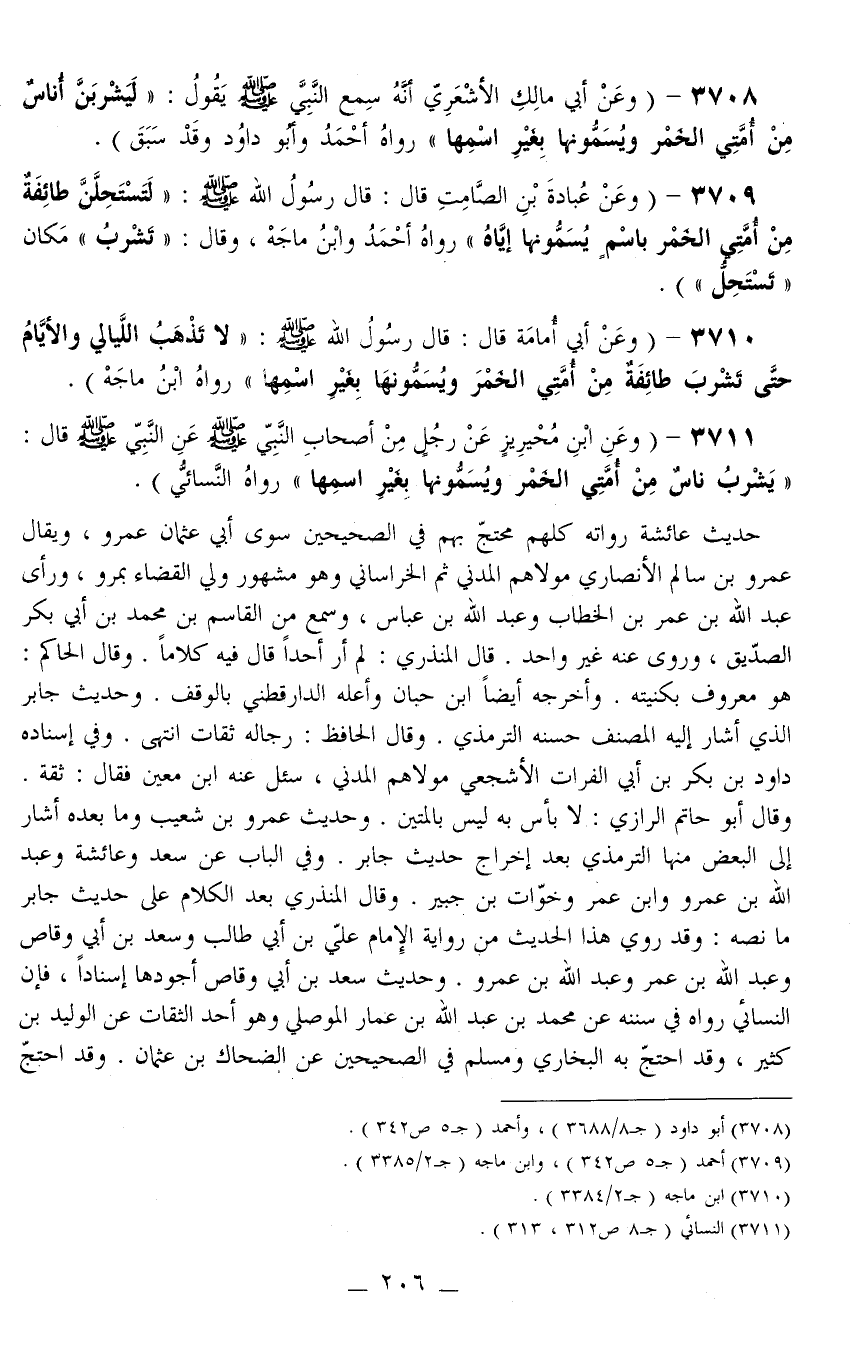 ٣٧٠٨ – ( وعَنْ أبي مالِكِ الأشْعَرِيّ أنَّهُ سِمع النَّبِيَّ ﷺ يَقُولُ : « لَيَشْربَنَّ أُناسٌ
مِنْ أُمَّتِي الخَمْر ويُسَمُّونها بِغَيْرِ اسْمِها » رواهُ أحْمَدُ وأبُو داوُد وقَدْ سَبَقَ ) .
٣٧٠٩ – ( وعَنْ عُبادةَ بْنِ الصَّامِتِ قال : قال رسُولُ الله ﷺ : « لَتَسْتَحِلَّنَّ طائِفَةٌ
مِنْ أُمَّتِي الخَمْر باسْمٍ يُسَمُّونها إيَّاهُ » رواهُ أحْمَدُ وابْنُ ماجَهْ ، وقال : « تَشْربُ » مَكان
« تَسْتَحِلُّ » ) .
٣٧١٠ – ( وعَنْ أبي أُمامَة قال : قال رسُولُ الله ﷺ : « لا تَذْهَبُ اللَّيالي والأيَّامُ
حتَّى تَشْربَ طائِفَةٌ مِنْ أُمَّتِي الخَمْرَ ويُسَمُّونهَا بِغَيْرِ اسْمِها » رواهُ ابْنُ ماجَهْ ) .
٣٧١١ – ( وعَنِ ابْنِ مُحْيرِيزٍ عَنْ رجُلٍ مِنْ أصحابِ النَّبِيّ ﷺ عَنِ النَّبِيّ ﷺ قال :
« يَشْربُ ناسٌ مِنْ أُمَّتِي الخَمْر ويُسَمُّونها بِغَيْرِ اسمِها » رواهُ النَّسائيُّ ) .
حديث عائشة رواته كلهم محتجّ بهم في الصحيحين سوى أبي عثمان عمرو ، ويقال
عمرو بن سالم الأنصاري مولاهم المدني ثم الخراساني وهو مشهور ولي القضاء بمرو ، ورأى
عبد الله بن عمر بن الخطاب وعبد الله بن عباس ، وسمع من القاسم بن محمد بن أبي بكر
الصدّيق ، وروى عنه غير واحد . قال المنذري : لم أر أحداً قال فيه كلاماً . وقال الحاكم :
هو معروف بكنيته . وأخرجه أيضاً ابن حبان وأعله الدارقطني بالوقف . وحديث جابر
الذي أشار إليه المصنف حسنه الترمذي . وقال الحافظ : رجاله ثقات انتهى . وفي إسناده
داود بن بكر بن أبي الفرات الأشجعي مولاهم المدني ، سئل عنه ابن معين فقال : ثقة .
وقال أبو حاتم الرازي : لا بأس به ليس بالمتين . وحديث عمرو بن شعيب وما بعده أشار
إلى البعض منها الترمذي بعد إخراج حديث جابر . وفي الباب عن سعد وعائشة وعبد
الله بن عمرو وابن عمر وخوّات بن جبير . وقال المنذري بعد الكلام على حديث جابر
ما نصه : وقد روي هذا الحديث من رواية الإمام عليّ بن أبي طالب وسعد بن أبي وقاص
وعبد الله بن عمر وعبد الله بن عمرو . وحديث سعد بن أبي وقاص أجودها إسناداً ، فإن
النسائي رواه في سننه عن محمد بن عبد الله بن عمار الموصلي وهو أحد الثقات عن الوليد بن
كثير ، وقد احتجّ به البخاري ومسلم في الصحيحين عن الضحاك بن عثمان . وقد احتجّ
(٣٧٠٨) أبو داود ( جـ٣٦٨٨/٨ ) ، وأحمد ( جـ٥ ص٣٤٢ ) .
(٣٧٠٩) أحمد ( جـ٥ ص٣٤٢ ) ، وابن ماجه ( جـ٣٣٨٥/٢ ) .
(٣٧١٠) ابن ماجه ( جـ٣٣٨٤/٢ ) .
(٣٧١١) النسائي ( جـ٨ ص٣١٢ ، ٣١٣ ) .
_ ٢٠٦ _